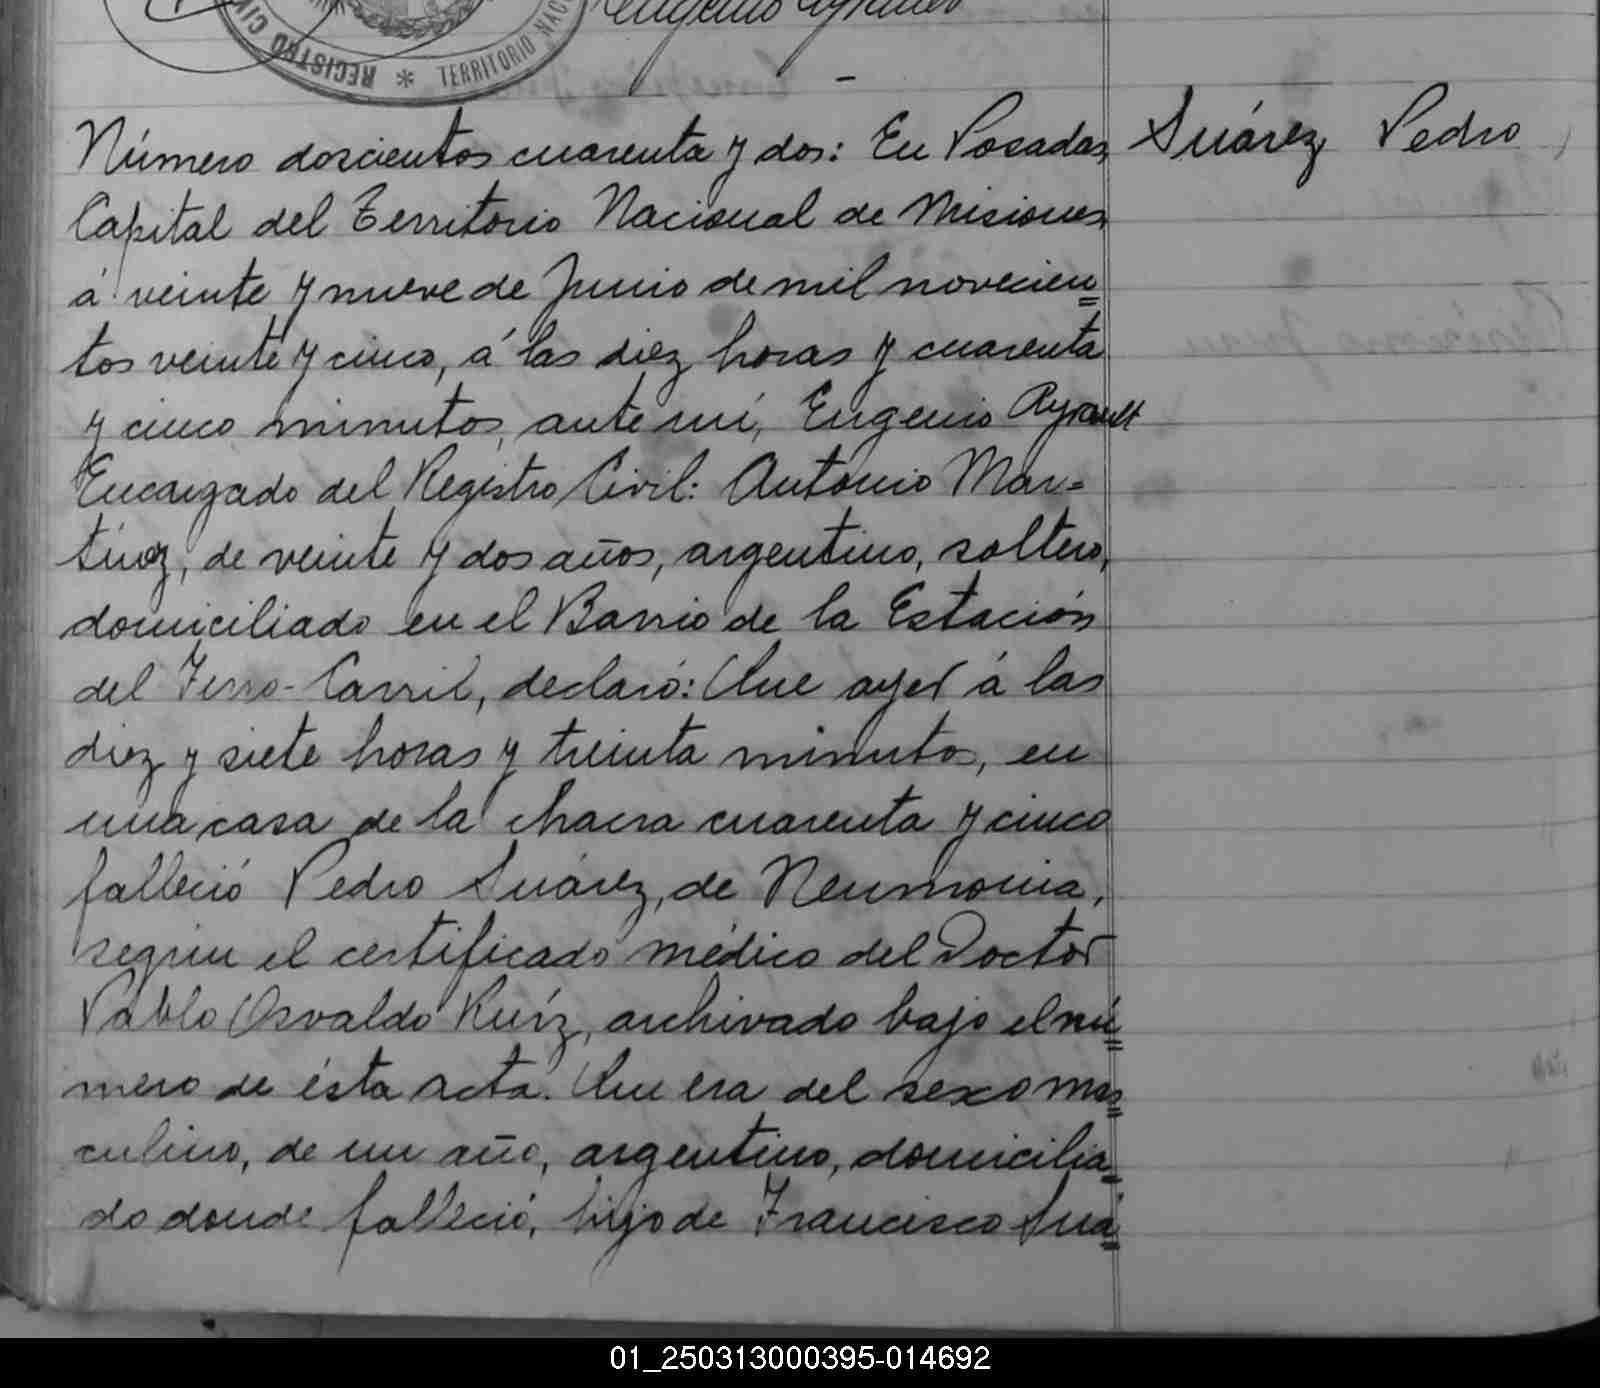 REGISTRO CIV
* TERRITORIO NAC
Eugenio Ayrault
Número doscientos cuarenta y dos: En Posadas, Suárez Pedro
Capital del Territorio Nacional de Misiones,
á veinte y nueve de Junio de mil novecien=
tos veinte y cinco, á las diez horas y cuarenta
y cinco minutos, ante mí, Eugenio Ayrault
Encargado del Registro Civil: Antonio Mar=
tínez, de veinte y dos años, argentino, soltero,
domiciliado en el Barrio de la Estación
del Ferro-Carril, declaró: Que ayer á las
diez y siete horas y treinta minutos, en
una casa de la chacra cuarenta y cinco
falleció Pedro Suárez, de Neumonia,
según el certificado médico del Doctor
Pablo Osvaldo Ruíz, archivado bajo el nú=
mero de ésta acta. Que era del sexo mas=
culino, de un año, argentino, domicilia=
do donde falleció, hijo de Francisco Suá=
01_250313000395-014692